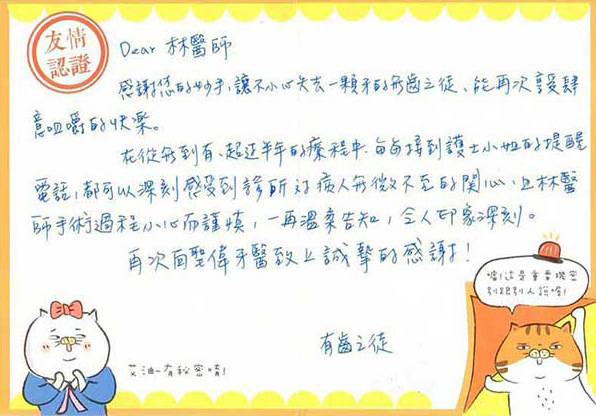 友情
認證
Dear 林醫師
感謝您的妙手,讓不小心失去一顆牙的無齒之徒、能再次享肆
意咀嚼的快樂。
在從無到有、超過半年的療程中,每每接到護士小姐的提醒
電話,都可以深刻感受到診所對病人無微不至的關心,且林醫
師手術過程小心而謹慎,一再溫柔告知,令人印象深刻。
再次向聖偉牙醫致上誠摯的感謝!
有齒之徒
噓!這是重要機密
別跟別人說喔!
艾油~有秘密唷!